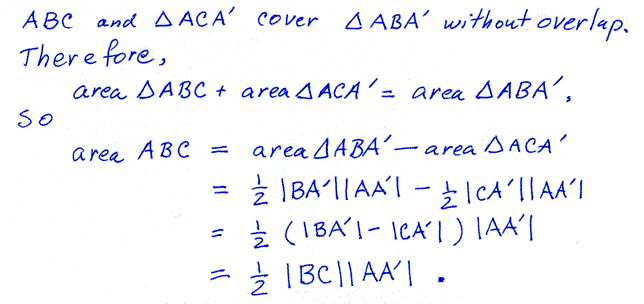 ABC and △ACA′ cover △ABA′ without overlap.
Therefore,
area △ABC + area △ACA′ = area △ABA′,
so
area ABC = area △ABA′ − area △ACA′
= ½ |BA′||AA′| − ½ |CA′||AA′|
= ½ (|BA′| − |CA′|) |AA′|
= ½ |BC||AA′| .